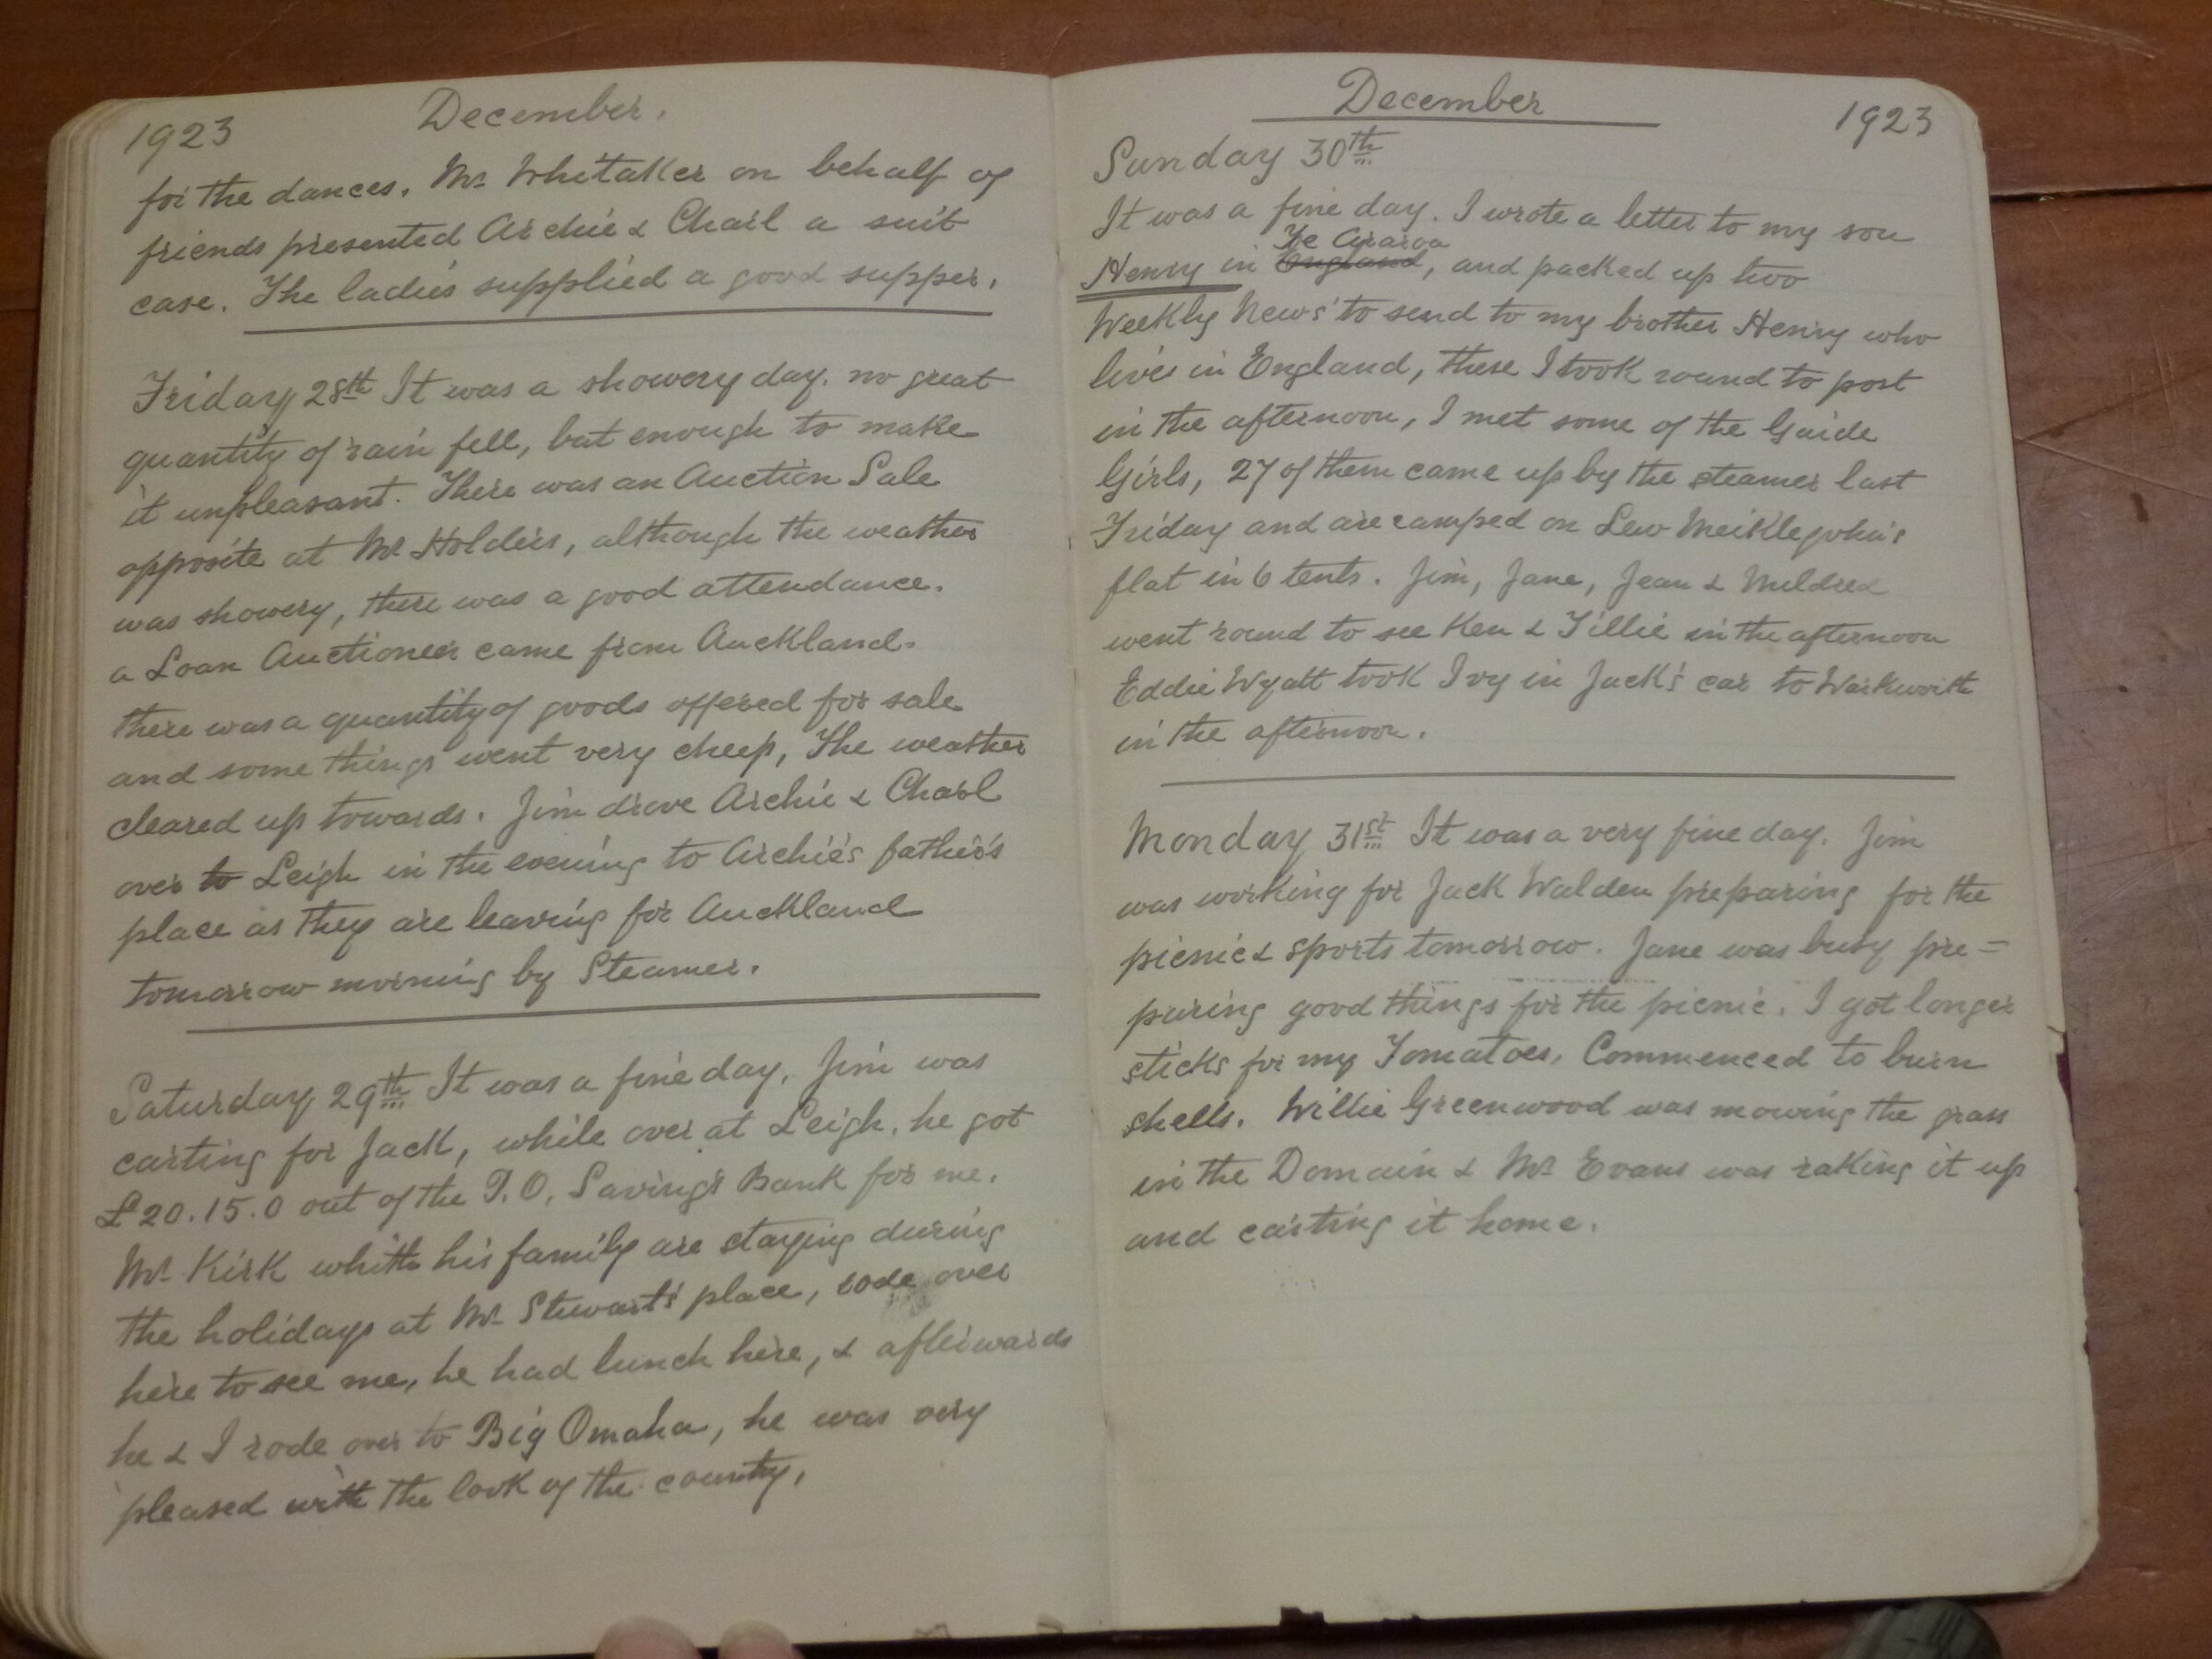 1923
December.
for the dances. Mr. Whitaker on behalf of
friends presented Archie & Charl a suit
case. The ladies supplied a good supper.
Friday 28th It was a showery day. no great
quantity of rain fell, but enough to make
it unpleasant. There was an Auction Sale
opposite at Mr. Holders, although the weather
was showery, there was a good attendance.
a Loan Auctioneer came from Auckland.
there was a quantity of goods offered for sale
and some things went very cheep, The weather
cleared up towards. Jim drove Archie & Charl
over to Leigh in the evening to Archie's father's
place as they are leaving for Auckland
tomorrow morning by Steamer.
Saturday 29th It was a fine day. Jim was
carting for Jack, while over at Leigh, he got
£20.15.0 out of the P.O. Saving's Bank for me.
Mr. Kirk whith his family are staying during
the holidays at Mr. Stewart's place, rode over
here to see me, he had lunch here, & afterwards
he & I rode over to Big Omaha, he was very
pleased with the look of the county,
December
1923
Sunday 30th
It was a fine day. I wrote a letter to my son
Te Araroa
Henry in England, and packed up two
Weekly News' to send to my brother Henry who
lives in England, these I took round to post
in the afternoon, I met some of the Guide
Girls, 27 of them came up by the steamer last
Friday and are camped on Lew Meiklejohn's
flat in 6 tents. Jim, Jane, Jean & Mildred
went round to see Ken & Tillie in the afternoon
Eddie Wyatt took Ivy in Jack's car to Warkworth
in the afternoon.
Monday 31st It was a very fine day. Jim
was working for Jack Walden preparing for the
picnic & sports tomorrow. Jane was busy pre=
paring good things for the picnic. I got longer
sticks for my Tomatoes, Commenced to burn
shells. Willie Greenwood was mowing the grass
in the Domain & Mr. Evans was raking it up
and carting it home.